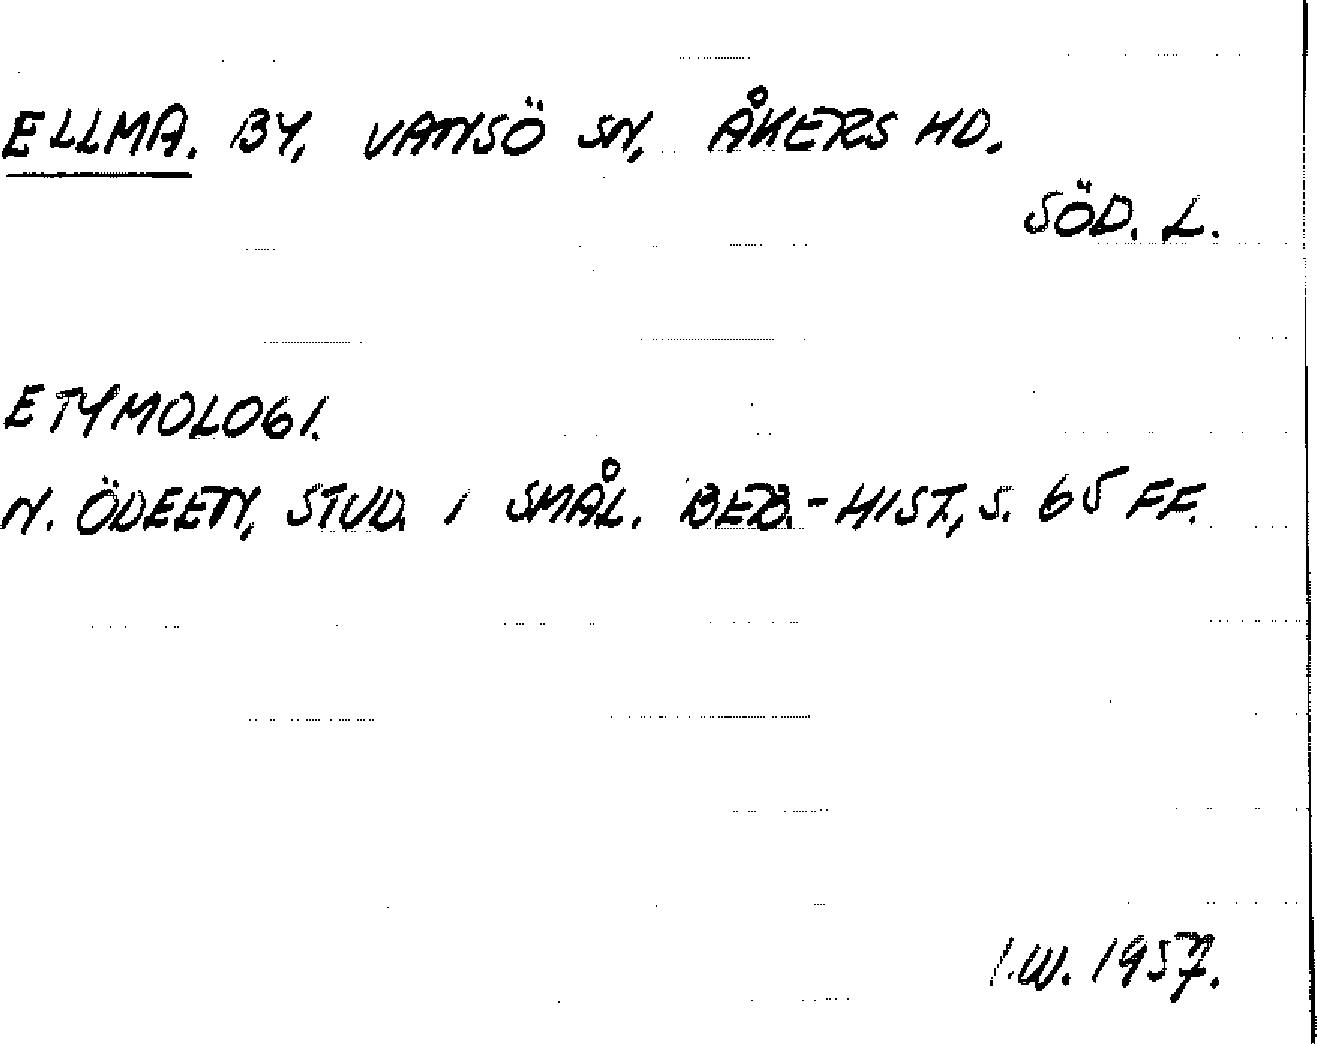 ELLMA. BY, VANSÖ SN, ÅKERS HD.
SÖD. L.
ETYMOLOGI.
N. ÖDEEN, STUD. I SMÅL. BEB.-HIST., S. 65 FF.
I.W. 1957.